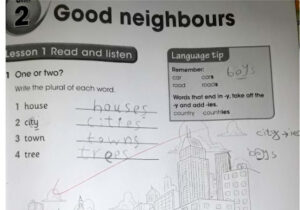 2 Good neighbours
Lesson 1 Read and listen
1 One or two?
Write the plural of each word.
1 house houses
2 city cities
3 town towns
4 tree trees
Language tip
Remember: boys
car cars
road roads
Words that end in -y, take off the
-y and add -ies.
country countries
city → ies
boys